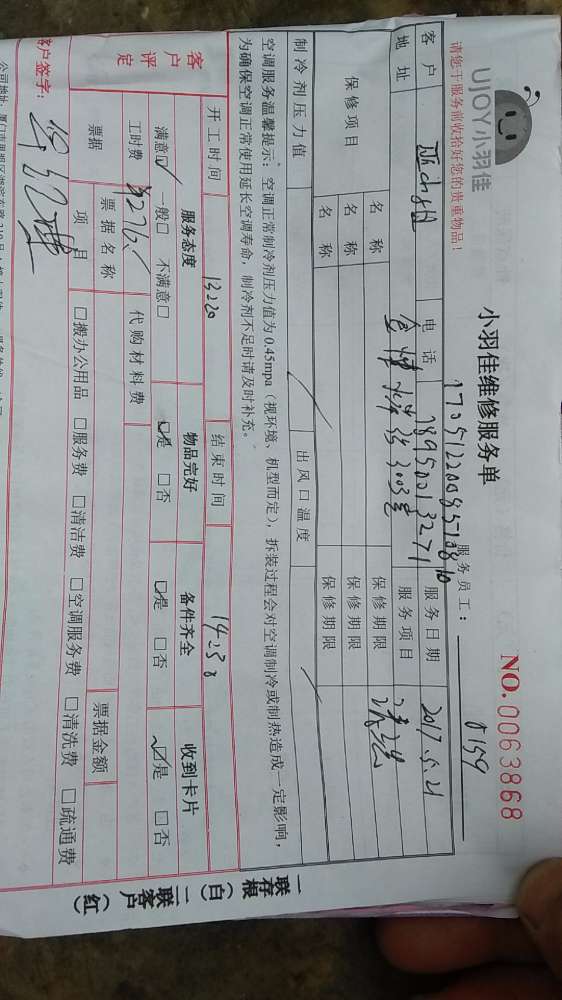 请您于服务前收拾好您的贵重物品!
UJOY小羽佳
小羽佳维修服务单
NO.0063868
服务员工: 0159
客户 电话 服务日期 2017.5.21
地址 3003室 服务项目 清洗
保修项目 名称 保修期限
名称 保修期限
名称 保修期限
制冷剂压力值 出风口温度
空调服务温馨提示: 空调正常制冷剂压力值为0.45mpa(视环境、机型而定), 拆装过程会对空调制冷或制热造成一定影响,
为确保空调正常使用延长空调寿命, 制冷剂不足时请及时补充。
开工时间 13:20 结束时间 14:30
客户评定 服务态度 物品完好 备件齐全 收到卡片
满意☑ 一般□ 不满意□ ☑是 □否 ☑是 □否 ☑是 □否
工时费 代购材料费
票据 票据名称 票据金额
项目 □搬办公用品 □服务费 □清洁费 □空调服务费 □清洗费 □疏通费
客户签字:
公司地址:
一联存根(白) 二联客户(红)